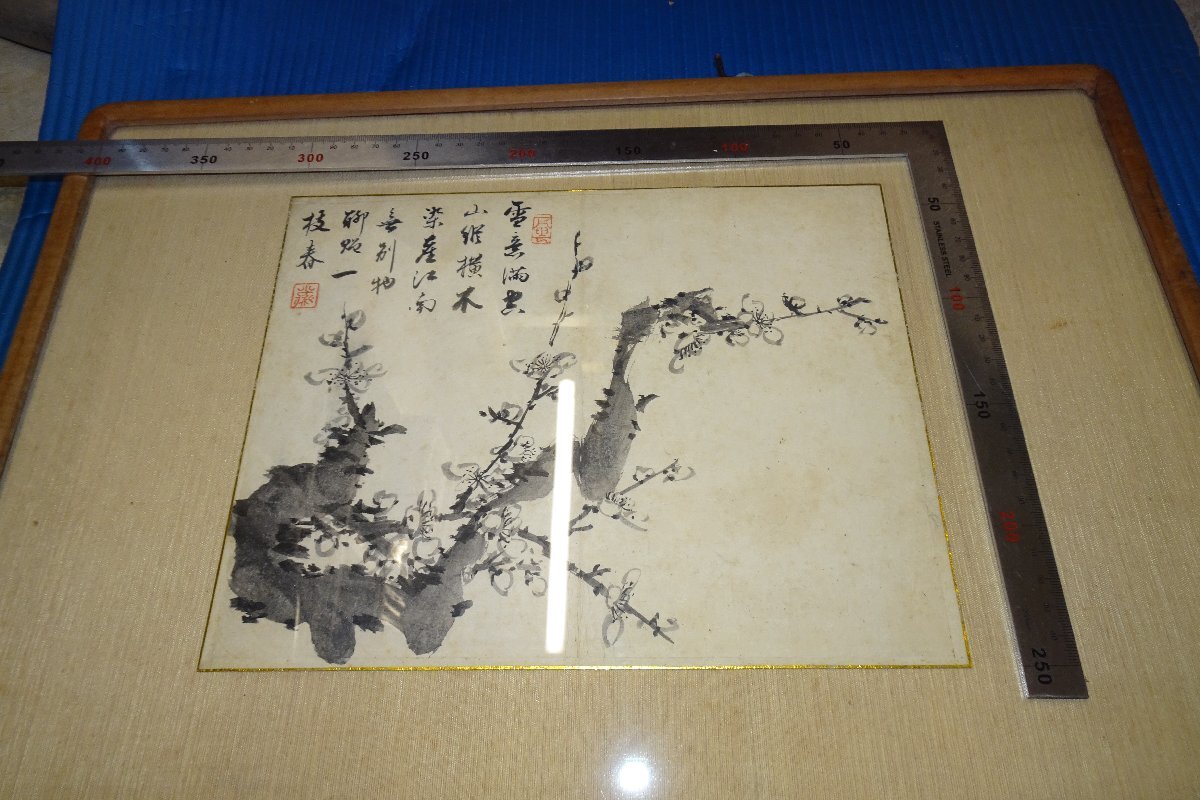 雪意滿空
山縱橫木
江南
無別物
聊贈一
枝春
400 350 300 250 200 150 100 50
50
STAINLESS STEEL
100
150
200
250